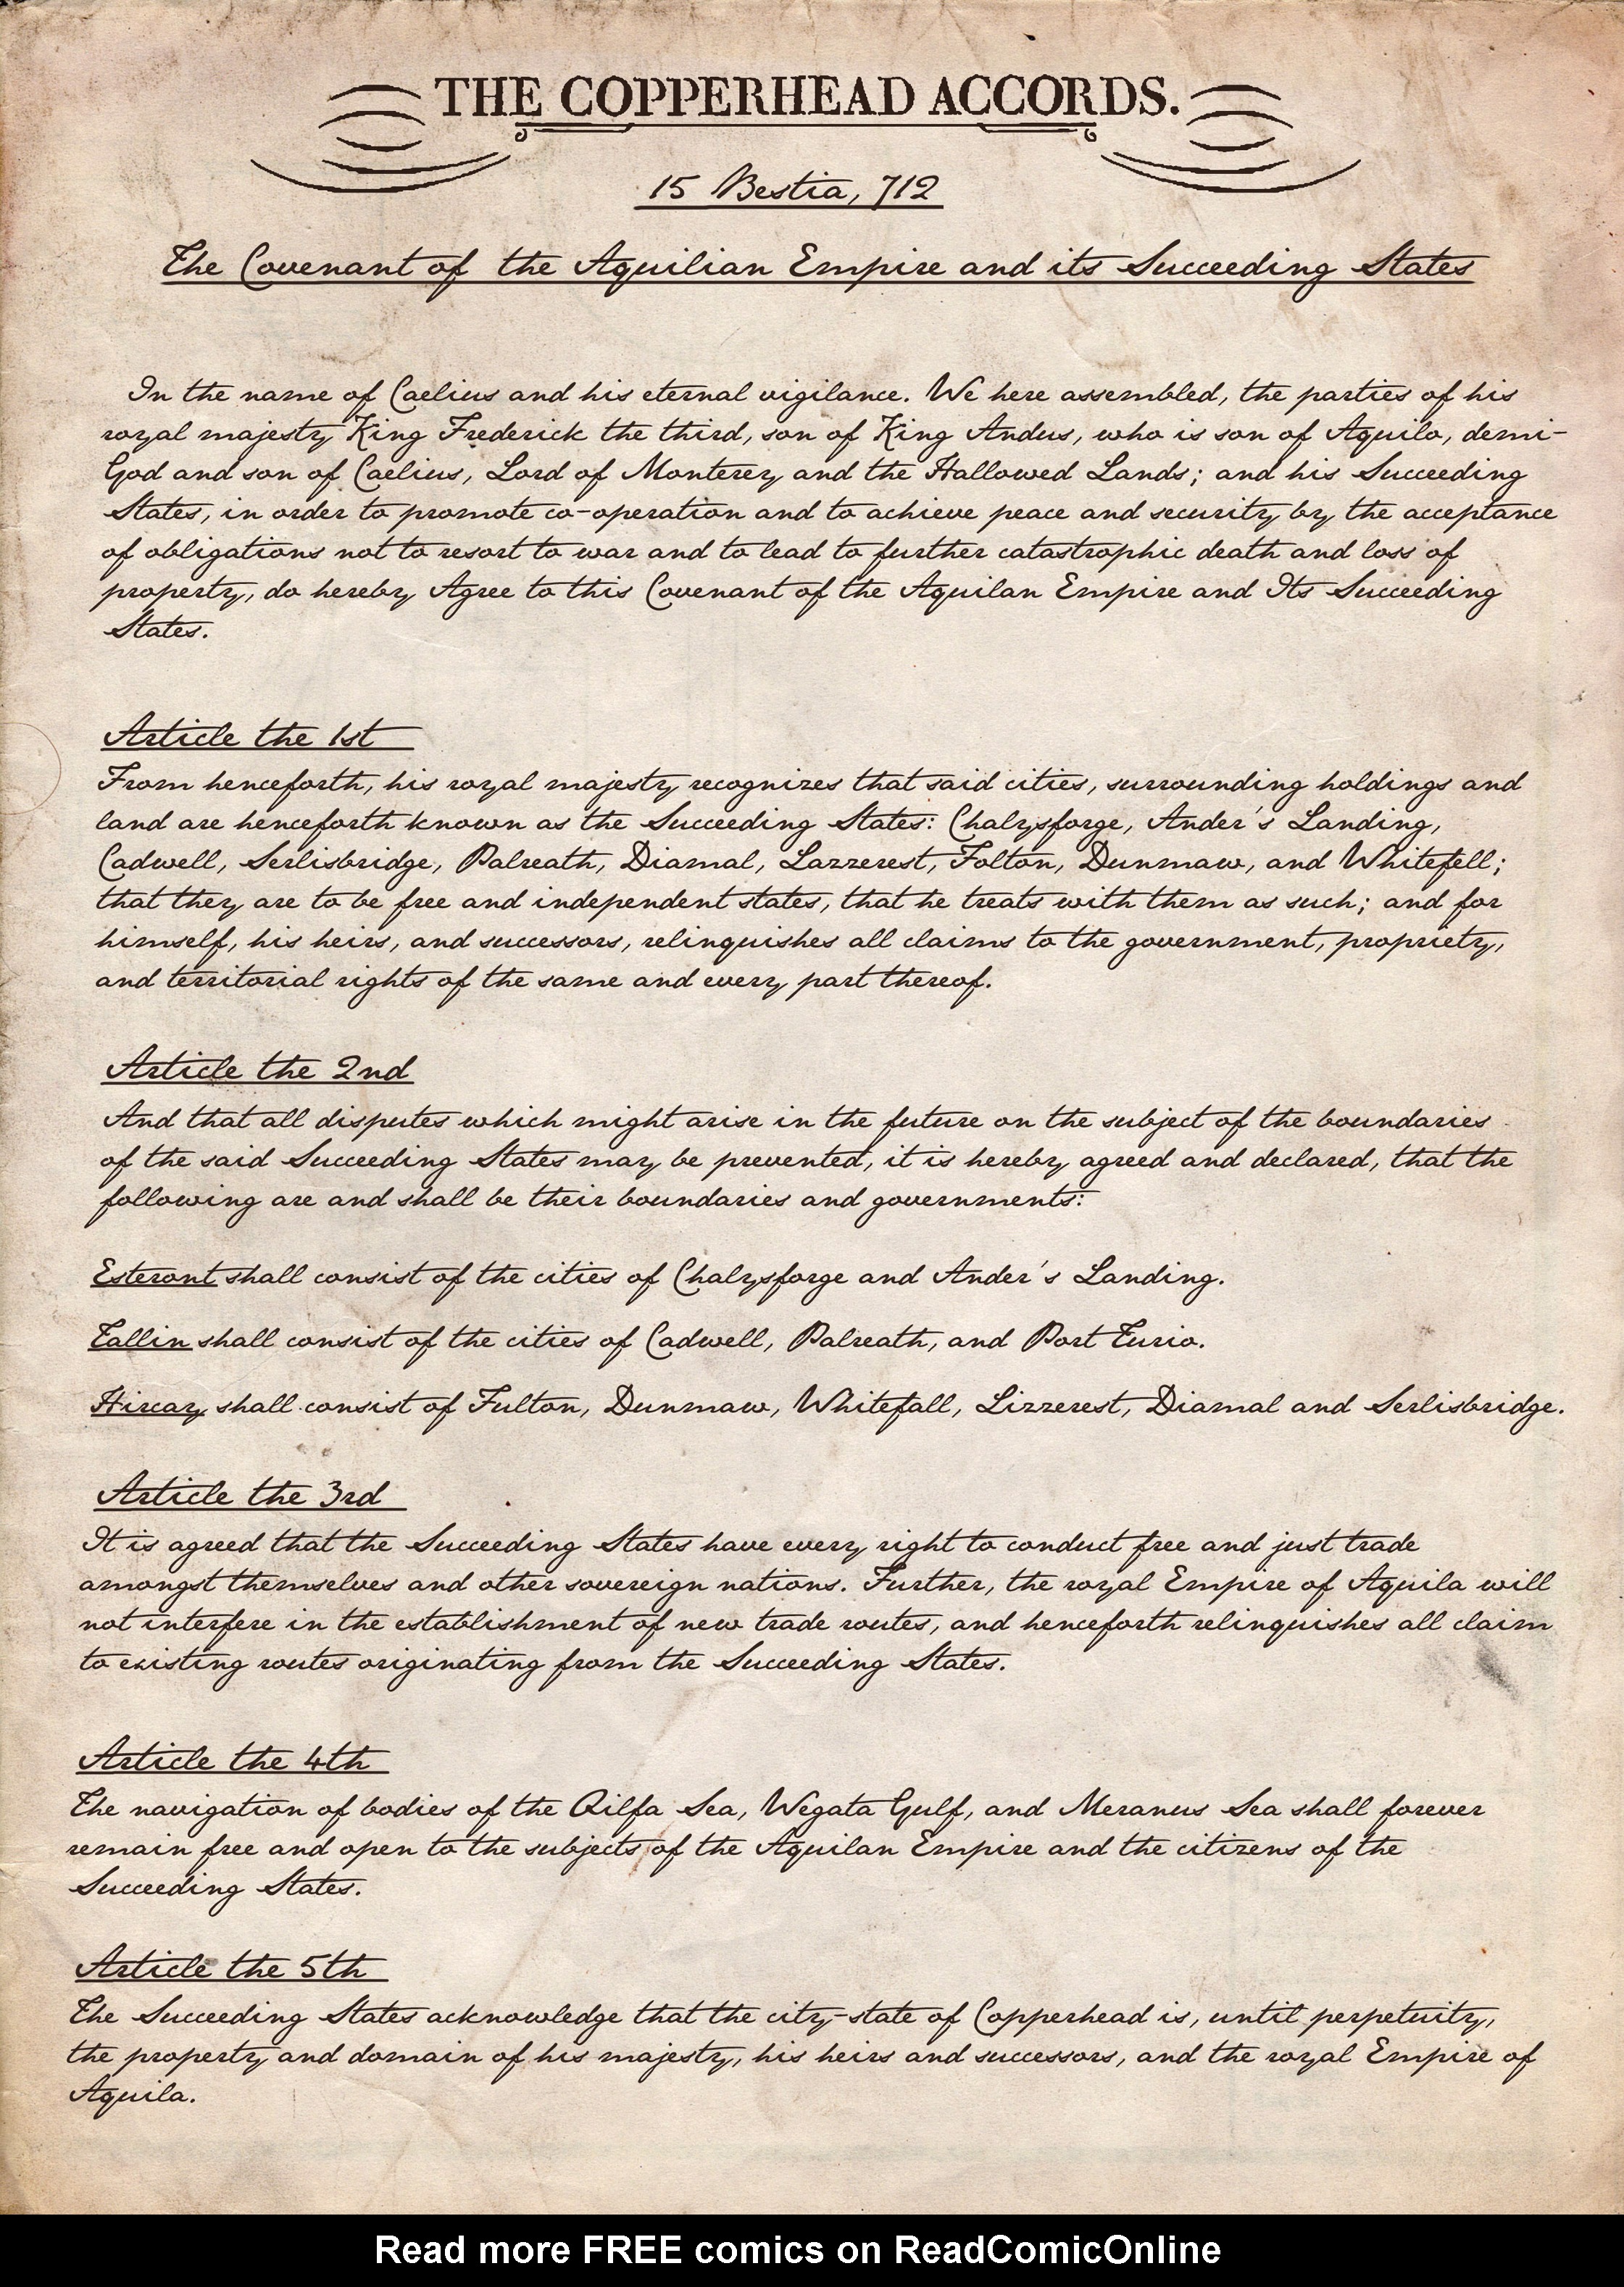 THE COPPERHEAD ACCORDS.
15 Bestia, 712
The Covenant of the Aquilian Empire and its Succeeding States
In the name of Caelius and his eternal vigilance. We here assembled, the parties of his
royal majesty King Frederick the third, son of King Andus, who is son of Aquila, demi-
God and son of Caelius, Lord of Monterey and the Hallowed Lands; and his Succeeding
States, in order to promote co-operation and to achieve peace and security by the acceptance
of obligations not to resort to war and to lead to further catastrophic death and loss of
property, do hereby Agree to this Covenant of the Aquilan Empire and Its Succeeding
States.
Article the 1st
From henceforth, his royal majesty recognizes that said cities, surrounding holdings and
land are henceforth known as the Succeeding States: Chalysforge, Ander's Landing,
Cadwell, Serlisbridge, Palreath, Diamal, Lazzerest, Folton, Dunmaw, and Whitefell;
that they are to be free and independent states, that he treats with them as such; and for
himself, his heirs, and successors, relinquishes all claims to the government, propriety,
and territorial rights of the same and every part thereof.
Article the 2nd
And that all disputes which might arise in the future on the subject of the boundaries
of the said Succeeding States may be prevented, it is hereby agreed and declared, that the
following are and shall be their boundaries and governments:
Esteront shall consist of the cities of Chalysforge and Ander's Landing.
Tallin shall consist of the cities of Cadwell, Palreath, and Port Turio.
Hircay shall consist of Fulton, Dunmaw, Whitefall, Lizzerest, Diamal and Serlisbridge.
Article the 3rd
It is agreed that the Succeeding States have every right to conduct free and just trade
amongst themselves and other sovereign nations. Further, the royal Empire of Aquila will
not interfere in the establishment of new trade routes, and henceforth relinquishes all claim
to existing routes originating from the Succeeding States.
Article the 4th
The navigation of bodies of the Qilfa Sea, Wegata Gulf, and Meranus Sea shall forever
remain free and open to the subjects of the Aquilan Empire and the citizens of the
Succeeding States.
Article the 5th
The Succeeding States acknowledge that the city-state of Copperhead is, until perpetuity,
the property and domain of his majesty, his heirs and successors, and the royal Empire of
Aquila.
Read more FREE comics on ReadComicOnline